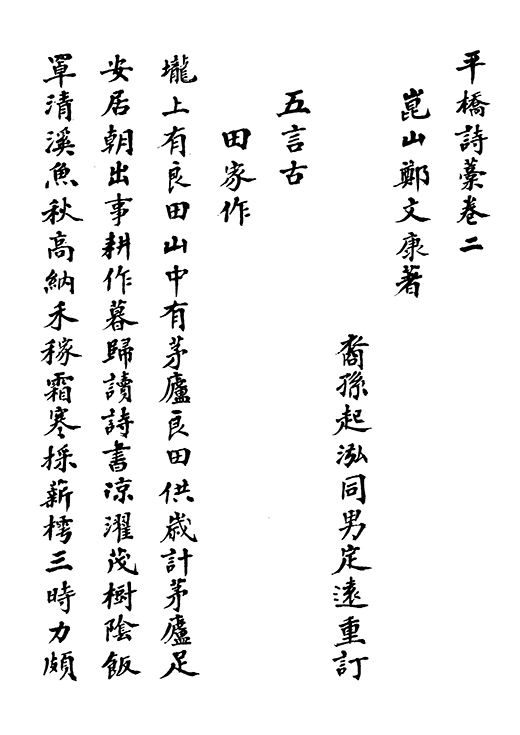 平橋詩藁卷二
崑山鄭文康著
裔孫起泓同男定遠重訂
五言古
田家作
壠上有良田山中有茅廬良田供歲計茅廬足
安居朝出事耕作暮歸讀詩書凉濯茂樹陰飯
罩清溪魚秋高納禾稼霜寒採薪樗三時力頗